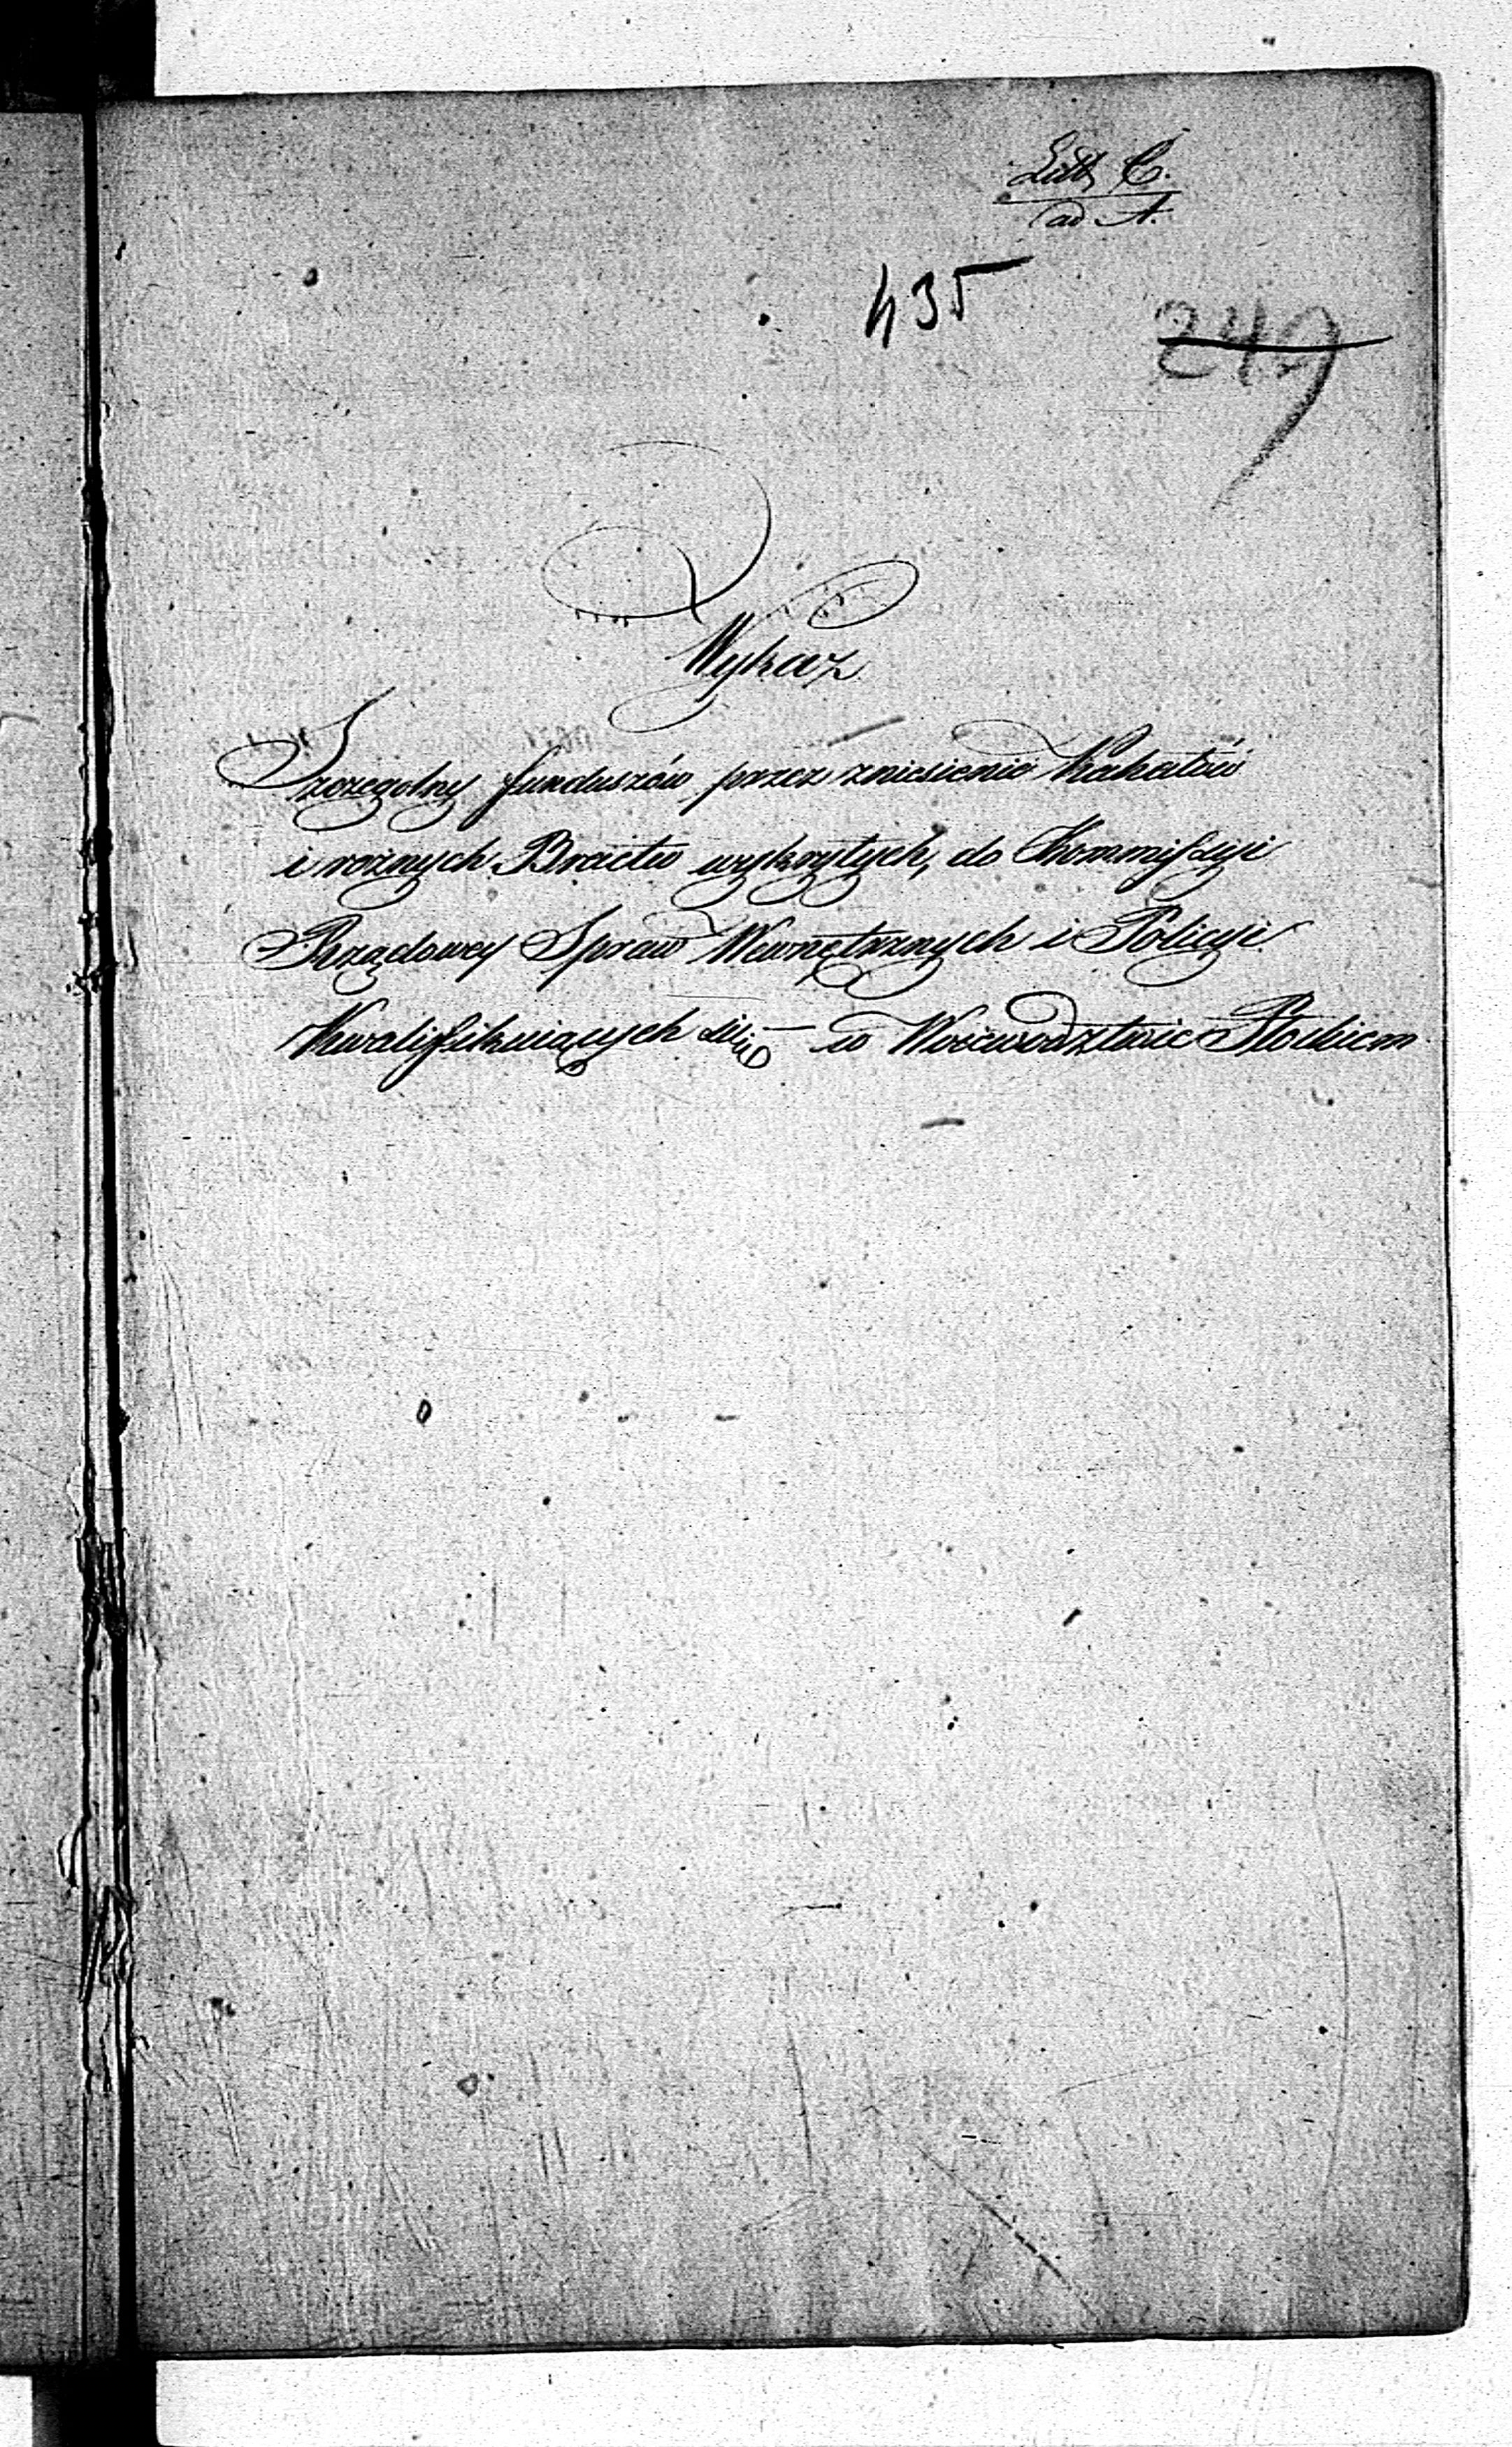 Litt C.
ad A.
435
249
Wykaz
Szczegolny funduszów przez zniesienie Kahałów
i roznych Bractw wykrytych, do Kommissyi
Rządowey Spraw Wewnętrznych i Policyi
Kwalifikuiących się — w Woiewodztwie Płockiem